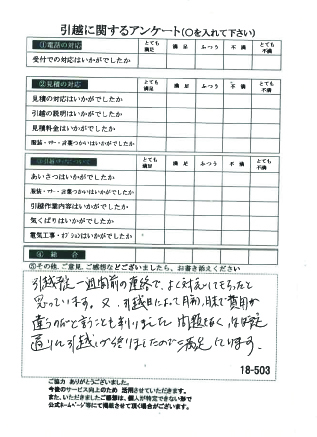 引越に関するアンケート(○を入れて下さい)
①電話の対応 とても満足 満足 ふつう 不満 とても不満
受付での対応はいかがでしたか
②見積の対応 とても満足 満足 ふつう 不満 とても不満
見積の対応はいかがでしたか
引越の説明はいかがでしたか
見積料金はいかがでしたか
服装・マナー・言葉つかいはいかがでしたか
とても満足 満足 ふつう 不満 とても不満
あいさつはいかがでしたか
服装・マナー・言葉つかいはいかがでしたか
引越作業内容はいかがでしたか
気くばりはいかがでしたか
電気工事・オプションはいかがでしたか
④総合
⑤その他、ご意見、ご感想などございましたら、お書き添えください
引越予定一週間前の連絡で、よく対応してもらったと
思っています。又、引越日によって月前、月末で費用が
違うのだと言うことも判りました 問題もなく、ほぼ予定
通りに引越しが終りましたので満足しています。
18-503
ご協力 ありがとうございました。
今後のサービス向上のため 活用させていただきます。
また、いただきましたご感想は、個人が特定できない形で
公式ホームページ等にて掲載させて頂く場合がございます。